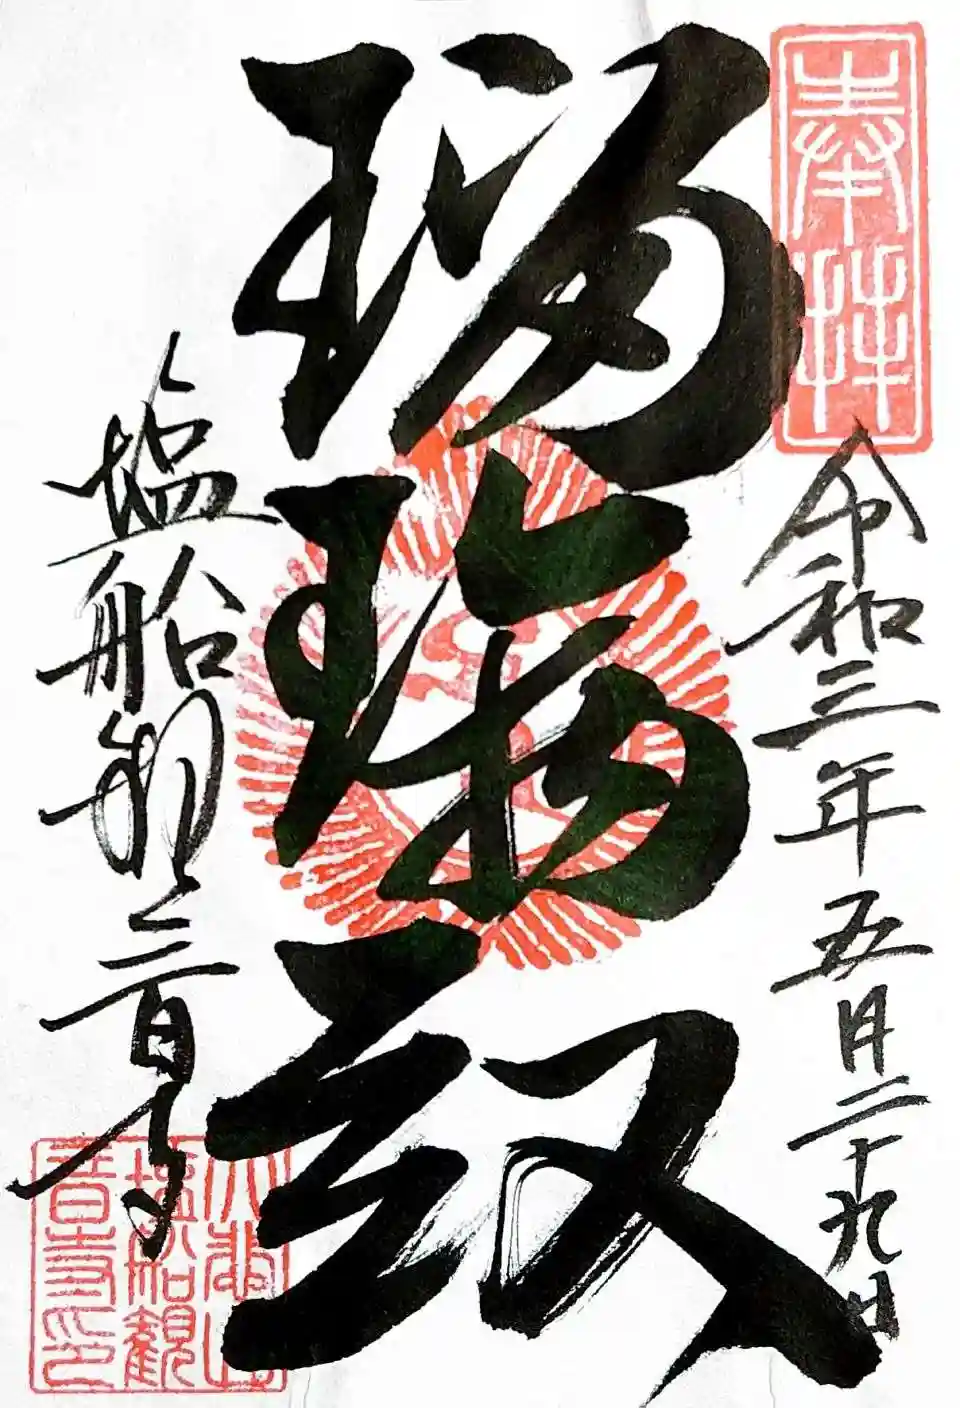 奉拝
令和三年五月二十九日
瑠璃殿
塩船観音寺
大悲山
塩船観
音寺印